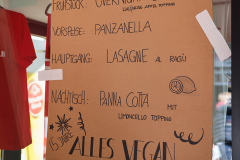 FRÜHSTÜCK: OVERNIGHT
VORSPEISE: PANZANELLA
HAUPTGANG: LASAGNE AL RAGÙ
NACHTISCH: PANNA COTTA
MIT
LIMONCELLO TOPPING
15 JAHRE
ALLES VEGAN